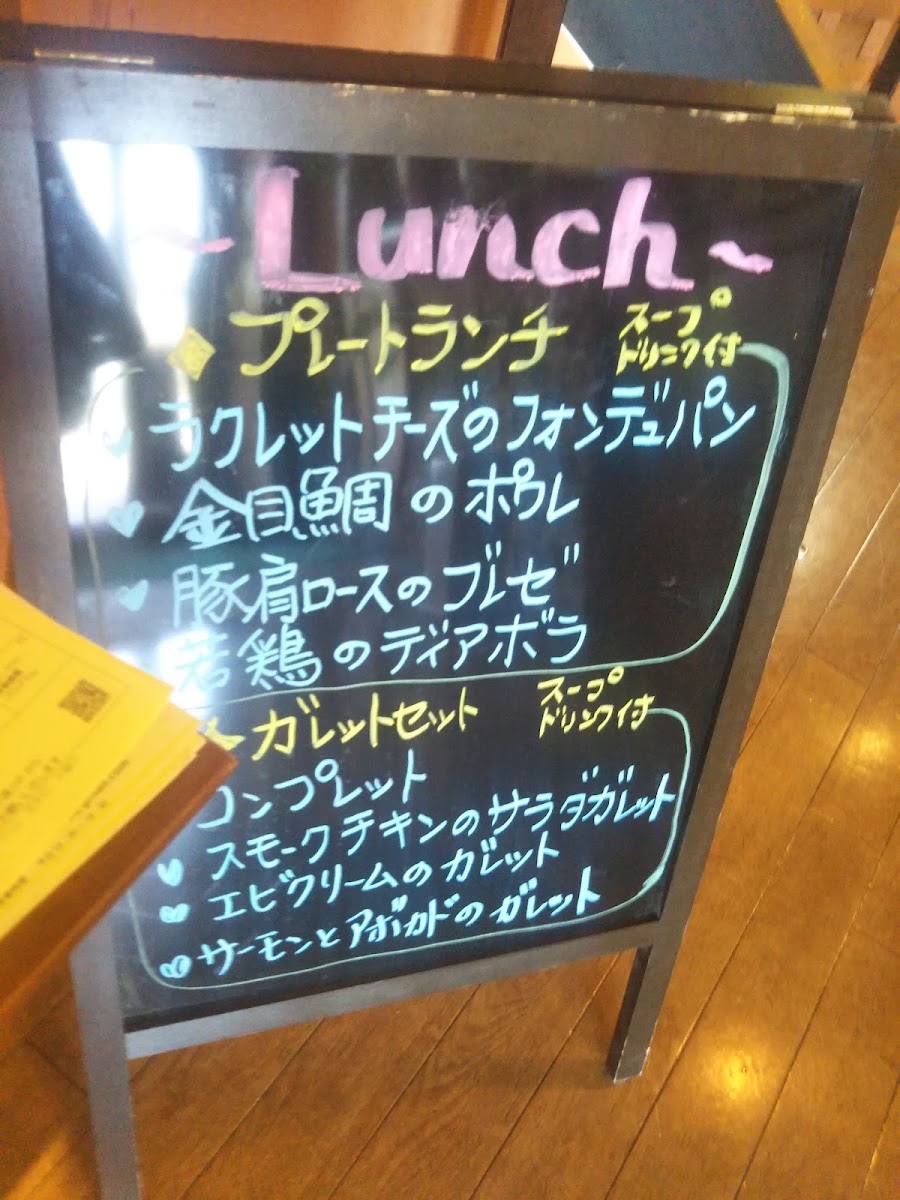 ~Lunch~
◆プレートランチ スープ
ドリンク付
ラクレットチーズのフォンデュパン
金目鯛のポワレ
豚肩ロースのブレゼ
若鶏のディアボラ
ガレットセット スープ
ドリンク付
コンプレット
スモークチキンのサラダガレット
エビクリームのガレット
サーモンとアボカドのガレット